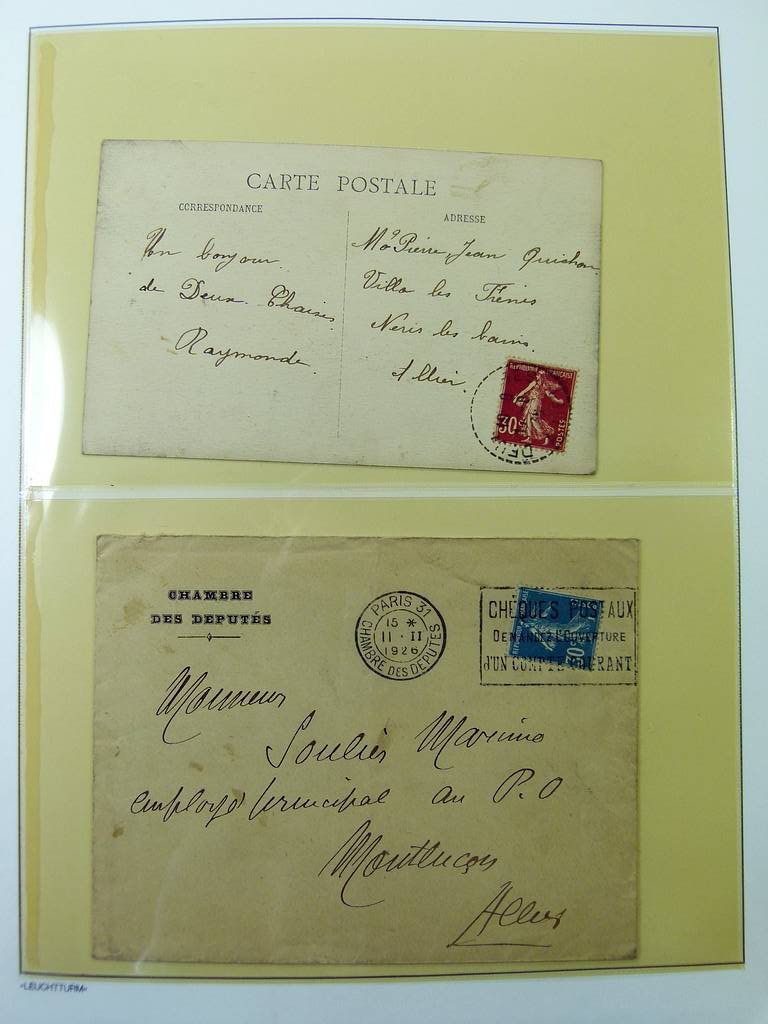 CARTE POSTALE
CORRESPONDANCE
Un bonjour
de Deux-Chaises
Raymonde.
ADRESSE
Pierre Jean
Villa les
Neris les bains.
Allier.
REPUBLIQUE FRANÇAISE
30c
POSTES
DEUX
CHAMBRE
DES DEPUTÉS
PARIS 31
15 *
11 - II
1926
CHAMBRE DES DEPUTES
CHÈQUES POSTAUX
DEMANDEZ L'OUVERTURE
d'UN COMPTE COURANT
Monsieur
Soulier
employé principal au P.O
Montluçon
Allier
«LEUCHTTURM»